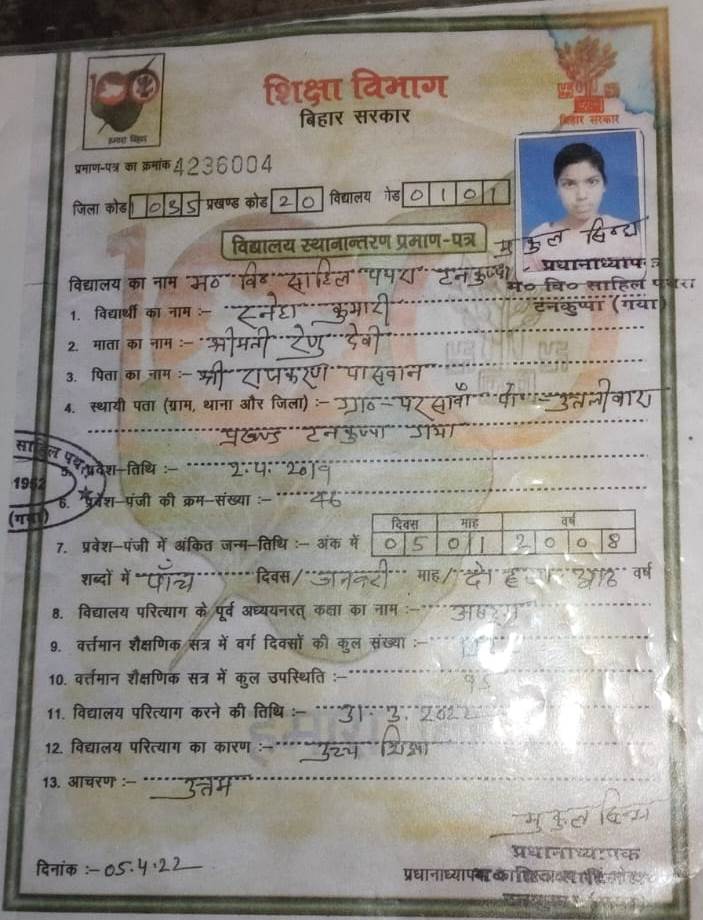 शिक्षा विभाग
बिहार सरकार
हमारा बिहार
बिहार सरकार
प्रमाण-पत्र का क्रमांक 4236004
जिला कोड 1035 प्रखण्ड कोड 20 विद्यालय कोड 0101
विद्यालय स्थानान्तरण प्रमाण-पत्र
प्रधानाध्यापक
म० वि० साहिल पथरा
टनकुप्पा (गया)
विद्यालय का नाम म० वि० साहिल पथरा टनकुप्पा
1. विद्यार्थी का नाम :- स्नेहा कुमारी
2. माता का नाम :- श्रीमती रेणु देवी
3. पिता का नाम :- श्री रामकरण पासवान
4. स्थायी पता (ग्राम, थाना और जिला) :- ग्रा०-परसावाँ पो०-
प्रखण्ड टनकुप्पा गया
साहिल पथरा
1952
(गया)
5. प्रवेश-तिथि :- 2.4.2019
6. प्रवेश-पंजी की क्रम-संख्या :- 46
दिवस माह वर्ष
7. प्रवेश-पंजी में अंकित जन्म-तिथि :- अंक में 05 01 2008
शब्दों में पाँच दिवस/ जनवरी माह/ दो हजार आठ वर्ष
8. विद्यालय परित्याग के पूर्व अध्ययनरत् कक्षा का नाम :- अष्टम
9. वर्त्तमान शैक्षणिक सत्र में वर्ग दिवसों की कुल संख्या :-
10. वर्त्तमान शैक्षणिक सत्र में कुल उपस्थिति :- 95
11. विद्यालय परित्याग करने की तिथि :- 31.3.2022
12. विद्यालय परित्याग का कारण :- उच्च शिक्षा
13. आचरण :- उत्तम
प्रधानाध्यापक
दिनांक :- 05.4.22